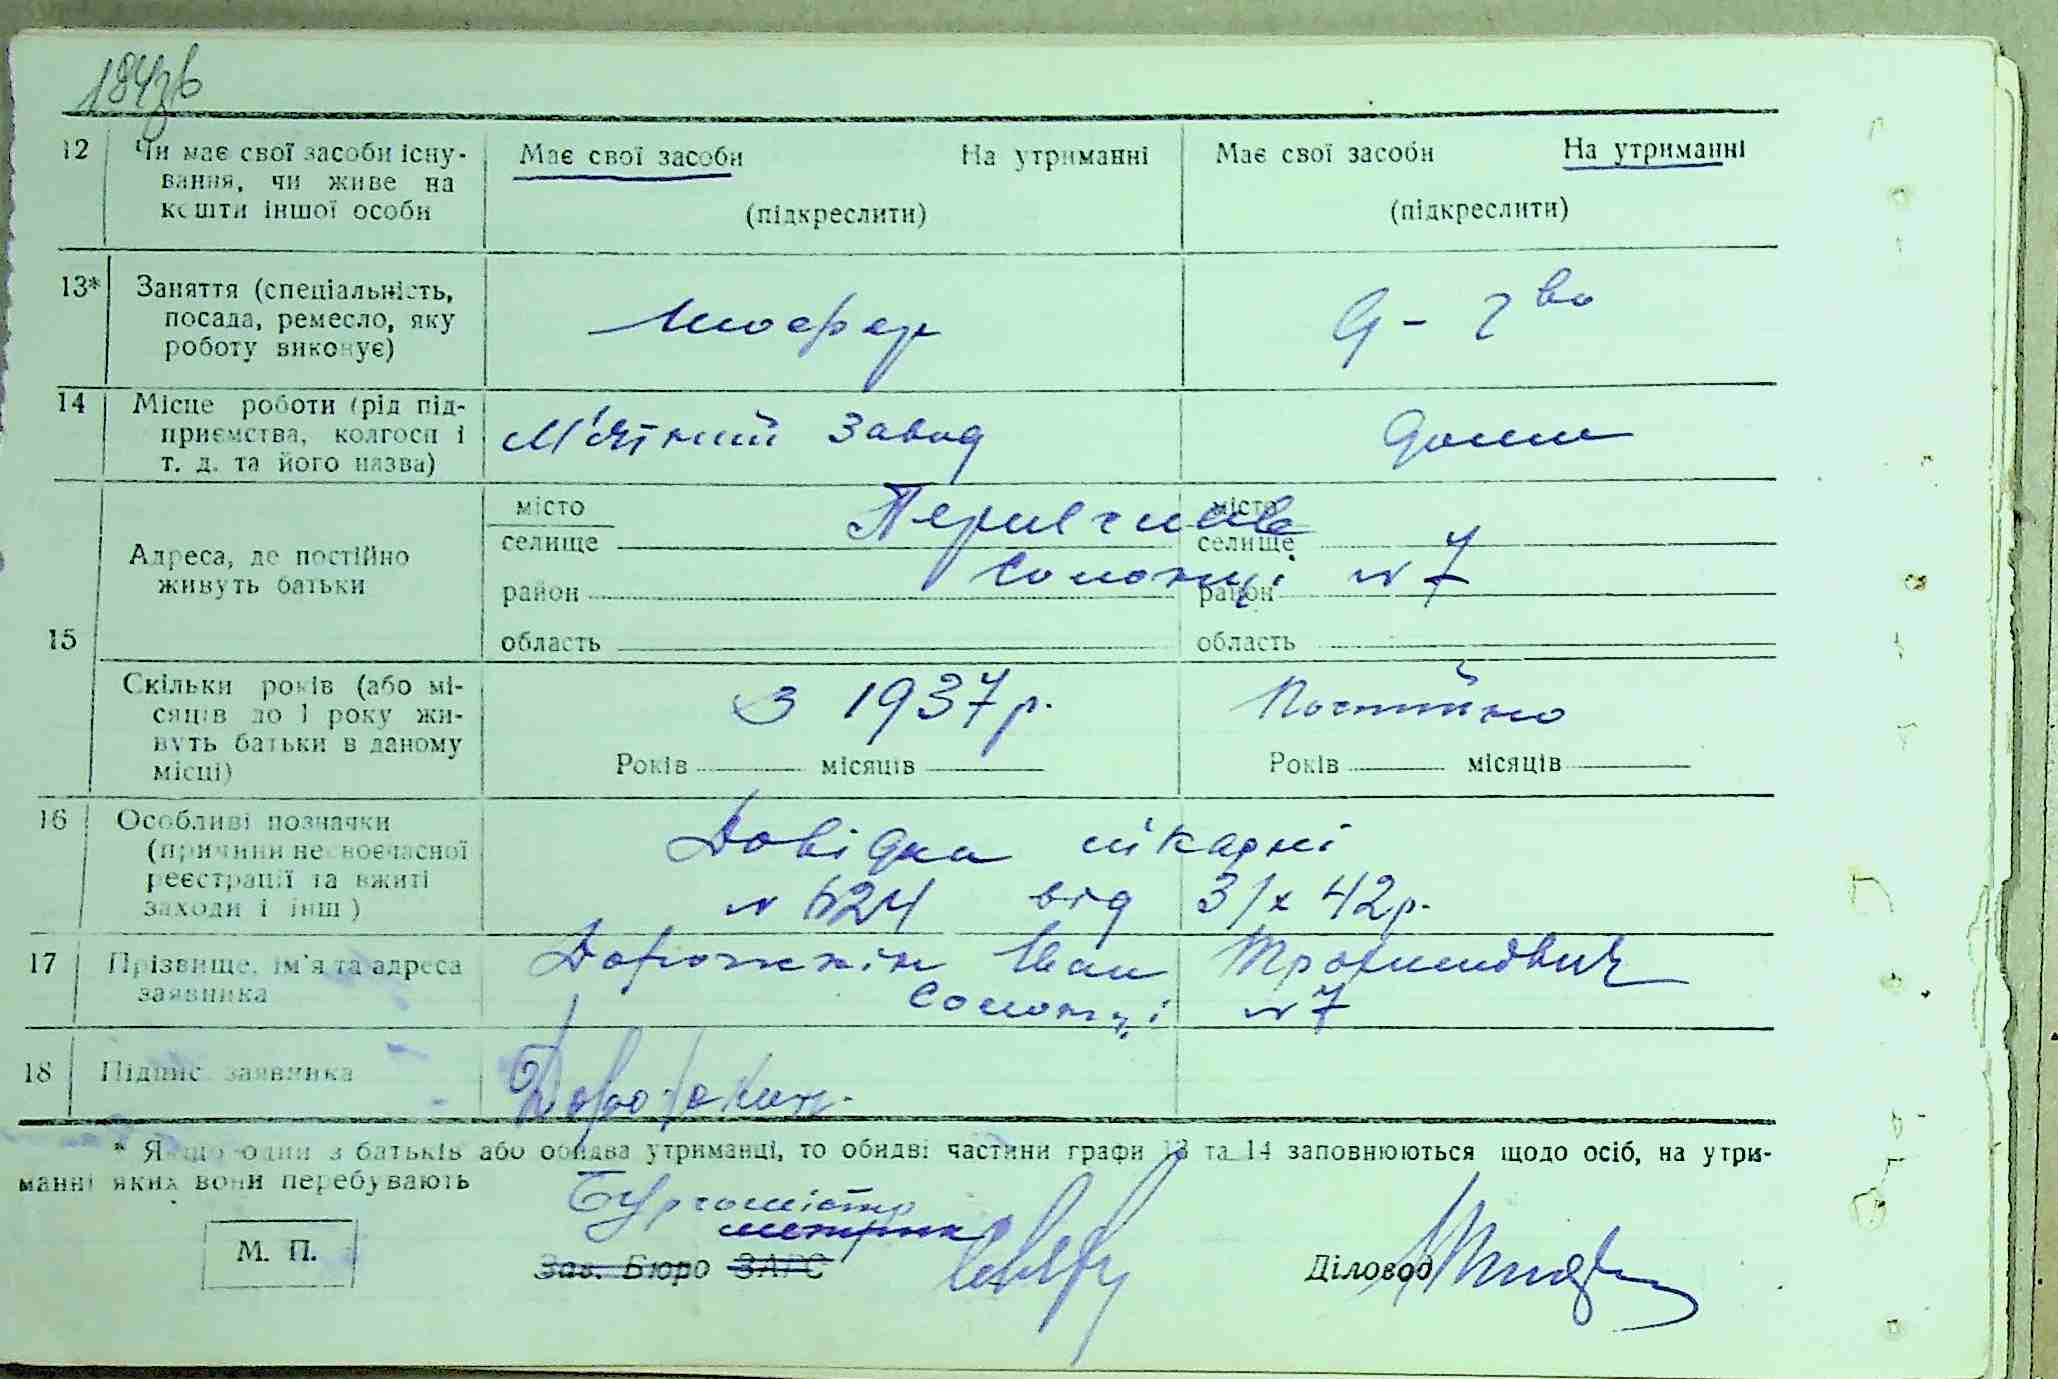 184зв
12 Чи має свої засоби існу- Має свої засоби На утриманні Має свої засоби На утриманні
вання, чи живе на
кошти іншої особи (підкреслити) (підкреслити)
13* Заняття (спеціальність, Шофер д-г во
посада, ремесло, яку
роботу виконує)
14 Місце роботи (рід під- М'ятний завод дома
приємства, колгосп і
т. д. та його назва)
15 Адреса, де постійно
живуть батьки
місто місто
селище селище
Солонці № 7
район район
область область
Скільки років (або мі- З 1937 р. Постійно
сяців до 1 року жи-
вуть батьки в даному
місці) Років місяців Років місяців
16 Особливі позначки Довідка лікарні
(причини несвоєчасної
реєстрації та вжиті № 624 від 31/X 42 р.
заходи і інш)
17 Прізвище, ім'я та адреса Дорожкін Іван Трохимович
заявника Солонці № 7
18 Підпис заявника
* Якщо один з батьків або обидва утриманці, то обидві частини графи 13 та 14 заповнюються щодо осіб, на утри-
манні яких вони перебувають
Бургомістр
М. П. Зав. Бюро ЗАГС Діловод